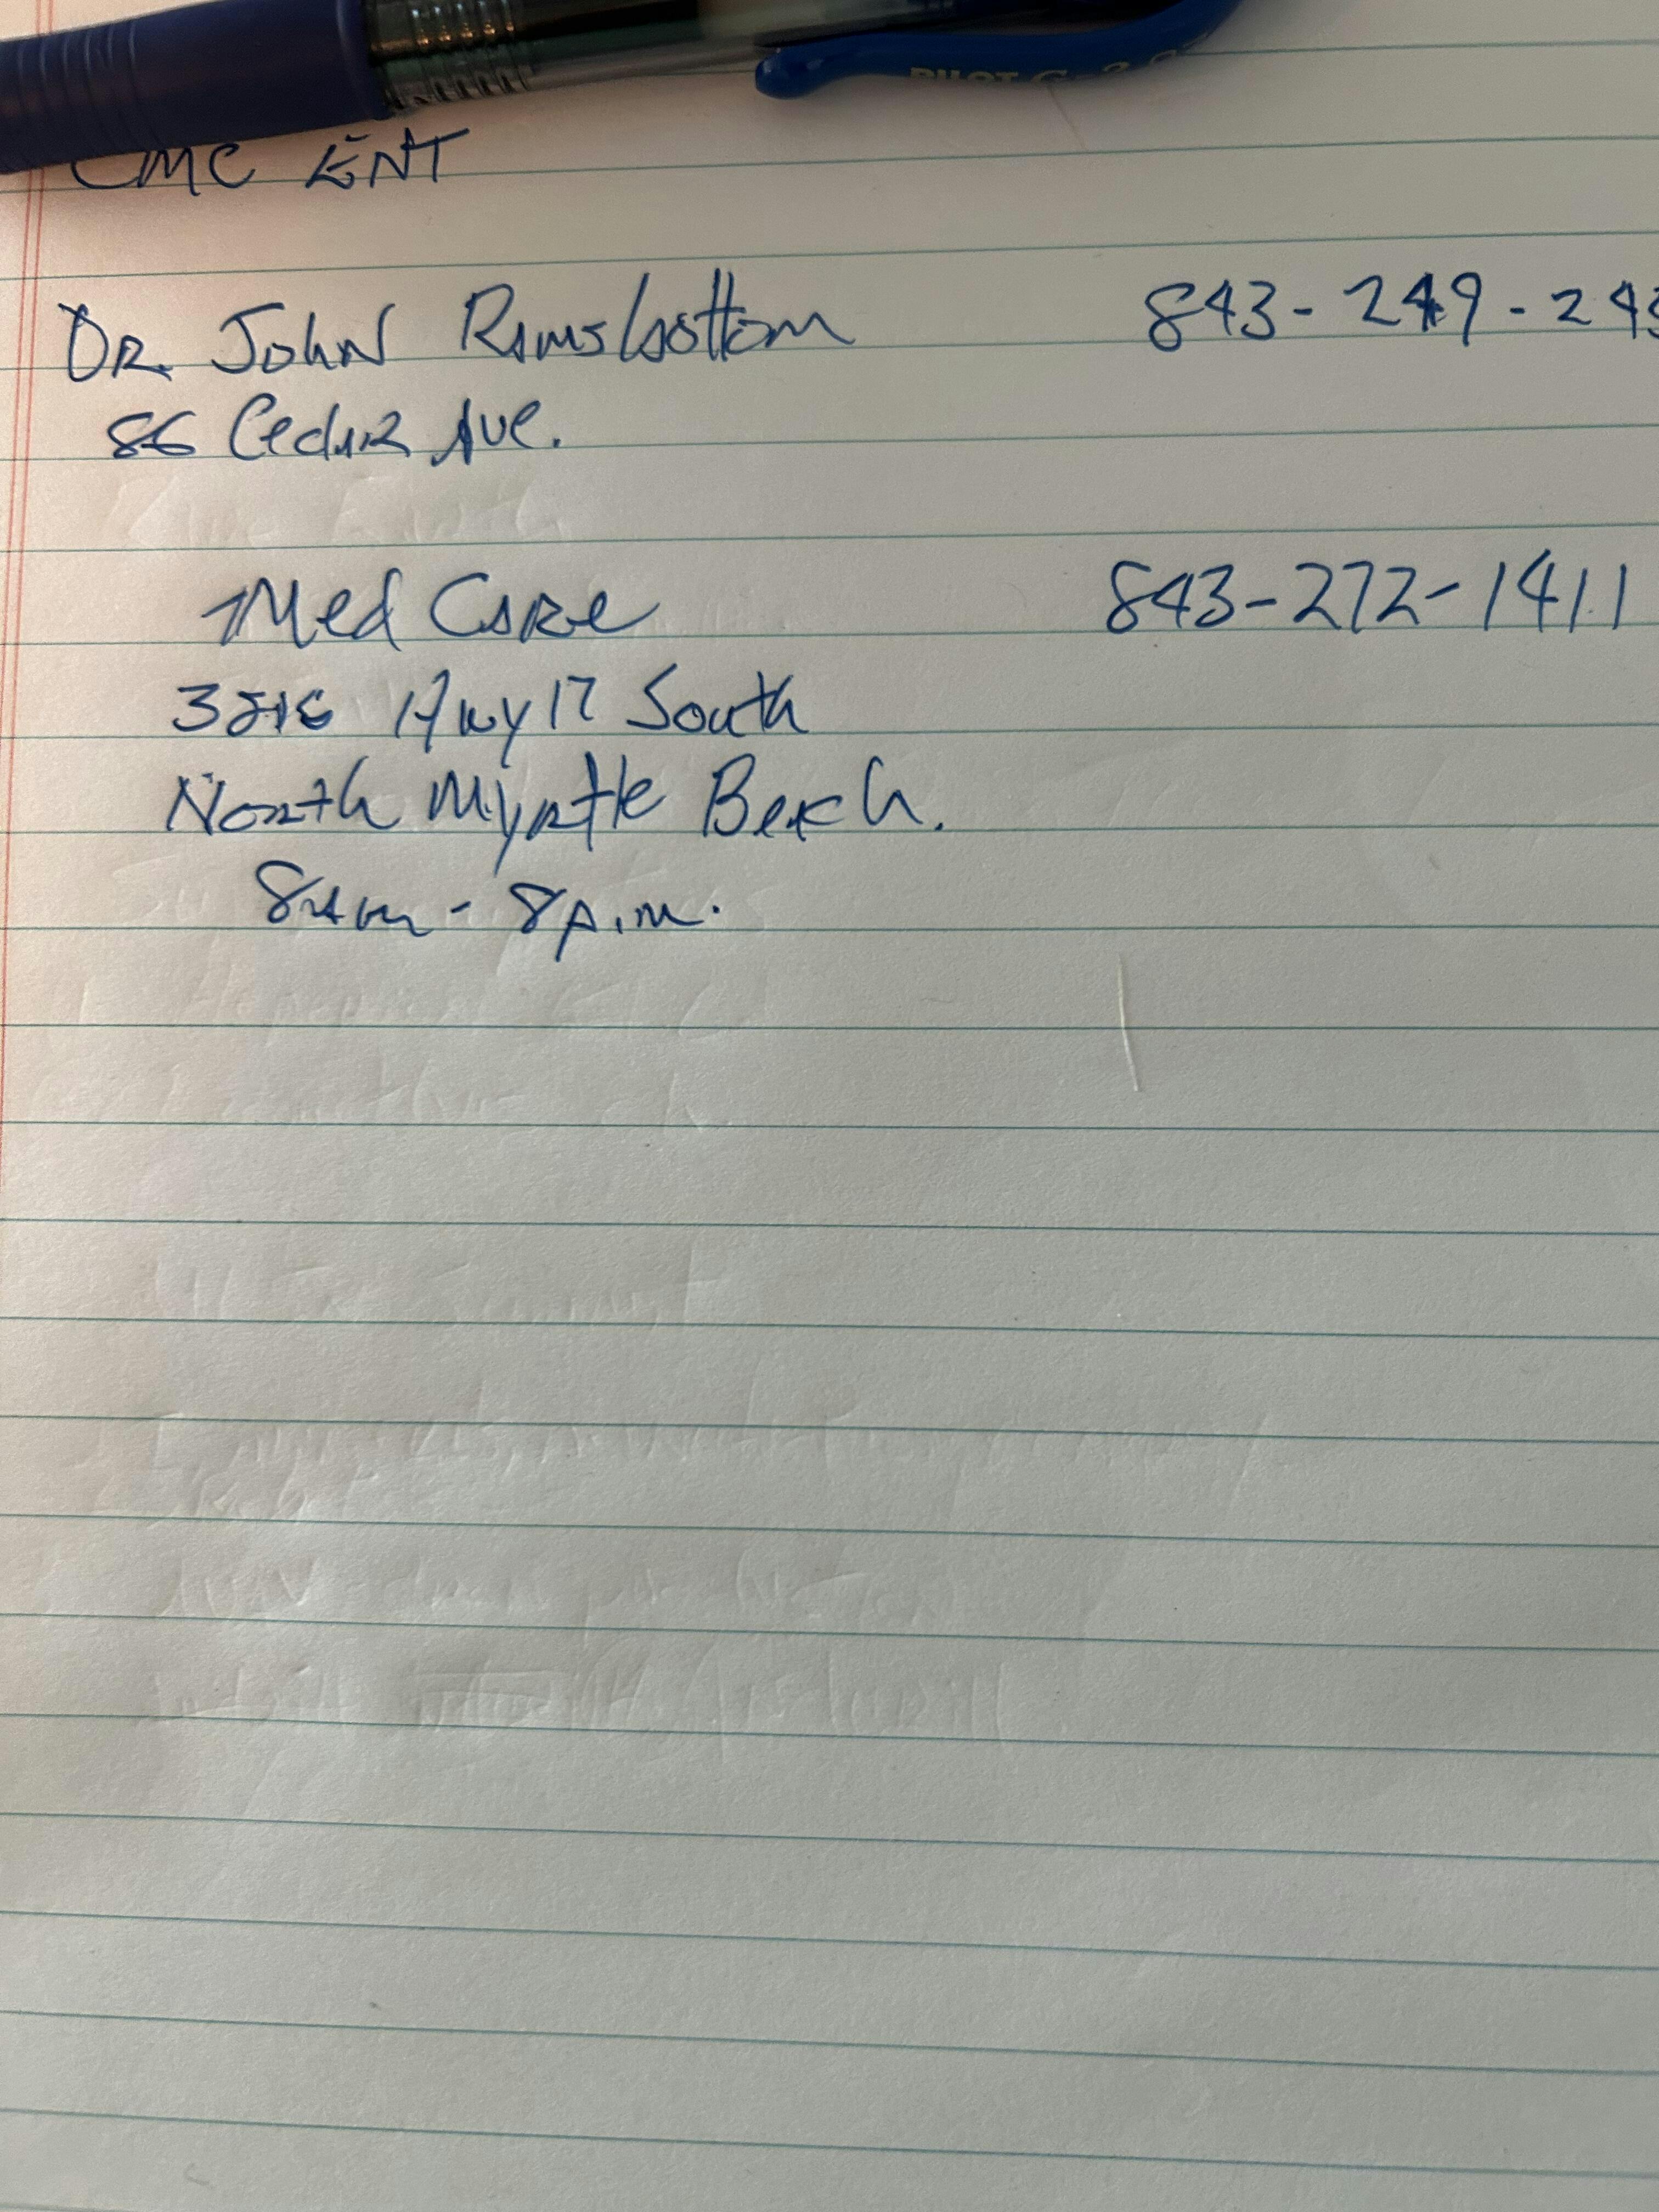 PILOT G-2
CMC ENT
DR. John Ramsbottom 843-249-243
86 Cedar Ave.
Med Care 843-272-1411
Hwy 17 South
North Myrtle Beach.
8am - 8p.m.